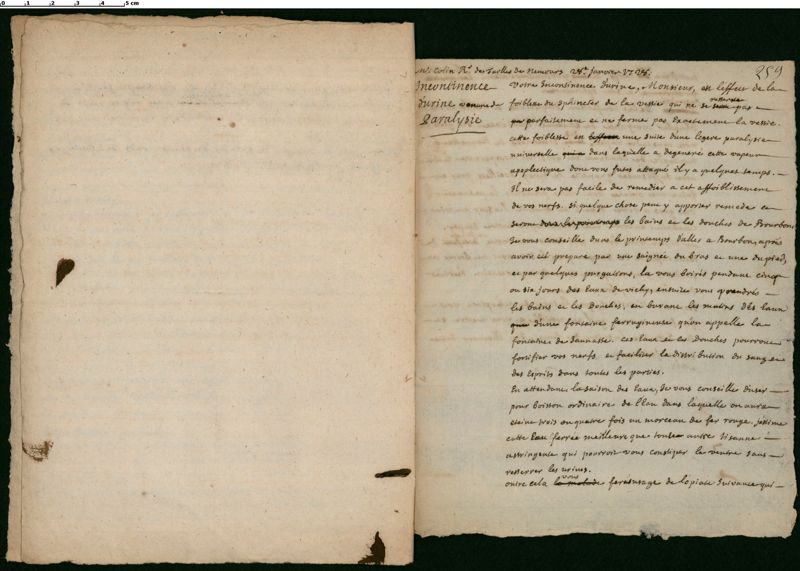 0 1 2 3 4 5 cm
259
Mr. Colin Rr. des Tailles de Nemours 24e. janvier 1724.
Incontinence
d'urine venue de
Paralysie
Votre Incontinence d'urine, Monsieur, est l'effect de la
foiblesse du sphincter de la vessie qui ne se resserre pas
parfaitement et ne ferme pas exactement la vessie.
cette foiblesse est une suite d'une legere paralysie
universelle dans laquelle a degeneré cette vapeur
apoplectique dont vous futes attaqué il y a quelques temps.
Il ne sera pas facile de remedier a cet affoiblissement
de vos nerfs. si quelque chose peut y apporter remede ce
seront les bains et les douches de Bourbon
Je vous conseille dans le printemps d'aller a Bourbon, apres
avoir eté preparé par une saignée du bras et une du pied,
et par quelques purgations, la vous boirés pendant cinq
ou six jours des Eaux de vichy, ensuite vous prendrés
les bains et les Douches, en buvant les matins des Eaux
d'une fontaine ferrugineuse qu'on appelle la
fontaine de Jaunasse. ces Eaux et ces Douches pourront
fortifier vos nerfs et faciliter la distribution du sang et
des Esprits dans toutes les parties.
En attendant la saison des Eaux, Je vous conseille d'user
pour boisson ordinaire de l'Eau dans laquelle on aura
eteint trois ou quatre fois un morceau de fer rouge. j'estime
cette Eau ferrée meilleure que toute autre tisanne
astringente qui pourroit vous constiper le ventre sans
resserrer les urines.
outre cela vous ferés usage de l'opiate suivante qui